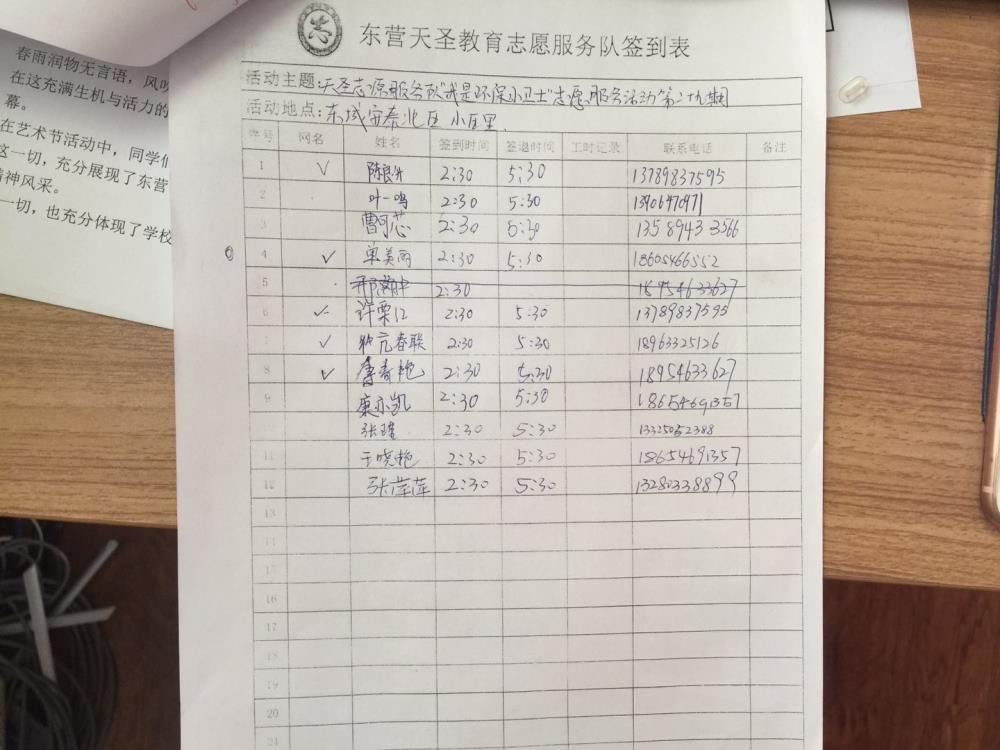 春雨润物无言语，风吹
在这充满生机与活力的
幕。
在艺术节活动中，同学们
这一切，充分展现了东营
精神风采。
一切，也充分体现了学校
东营天圣教育志愿服务队签到表
活动主题:天圣志愿服务队"我是环保小卫士"志愿服务活动第二十九期
活动地点:东城安泰北区 小区里
序号 网名 姓名 签到时间 签退时间 工时记录 联系电话 备注
1 ✓ 陈良升 2:30 5:30 13789837595
2 叶一鸣 2:30 5:30 13906470971
3 曹可芯 2:30 5:30 13589433566
4 ✓ 单美丽 2:30 5:30 18605466552
5 2:30 18954633627
6 ✓ 许栗仁 2:30 5:30 13789837595
7 ✓ 春联 2:30 5:30 18963325126
8 ✓ 2:30 5:30 18954633627
9 康亦凯 2:30 5:30 18654691357
张 2:30 5:30 13325052388
11 于晓艳 2:30 5:30 18654691357
12 张萍萍 2:30 5:30 13280338899
13
14
15
16
17
18
19
20
21